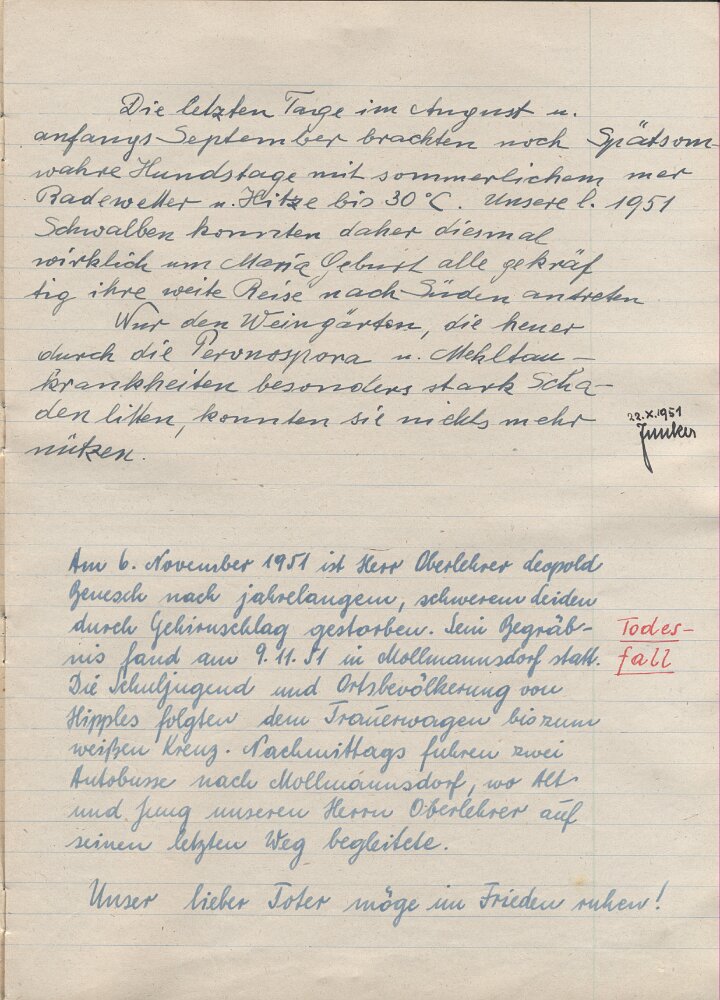 Die letzten Tage im August u.
anfangs September brachten noch Spätsom-
wahre Hundstage mit sommerlichem mer
Badewetter u. Hitze bis 30°C. Unsere l. 1951
Schwalben konnten daher diesmal
wirklich um Maria Geburt alle gekräf
tig ihre weite Reise nach Süden antreten
Nur den Weingärten, die heuer
durch die Peronospora u. Mehltau-
krankheiten besonders stark Scha-
den litten, konnten sie nichts mehr
nützen.
22.X.1951
Junker
Am 6. November 1951 ist Herr Oberlehrer Leopold
Benesch nach jahrelangem, schwerem Leiden
durch Gehirnschlag gestorben. Sein Begräb-
nis fand am 9.11.51 in Mollmannsdorf statt.
Todes-
fall
Die Schuljugend und Ortsbevölkerung von
Hipples folgten dem Trauerwagen bis zum
weißen Kreuz. Nachmittags fuhren zwei
Autobusse nach Mollmannsdorf, wo Alt
und Jung unseren Herrn Oberlehrer auf
seinen letzten Weg begleitete.
Unser lieber Toter möge im Frieden ruhen!